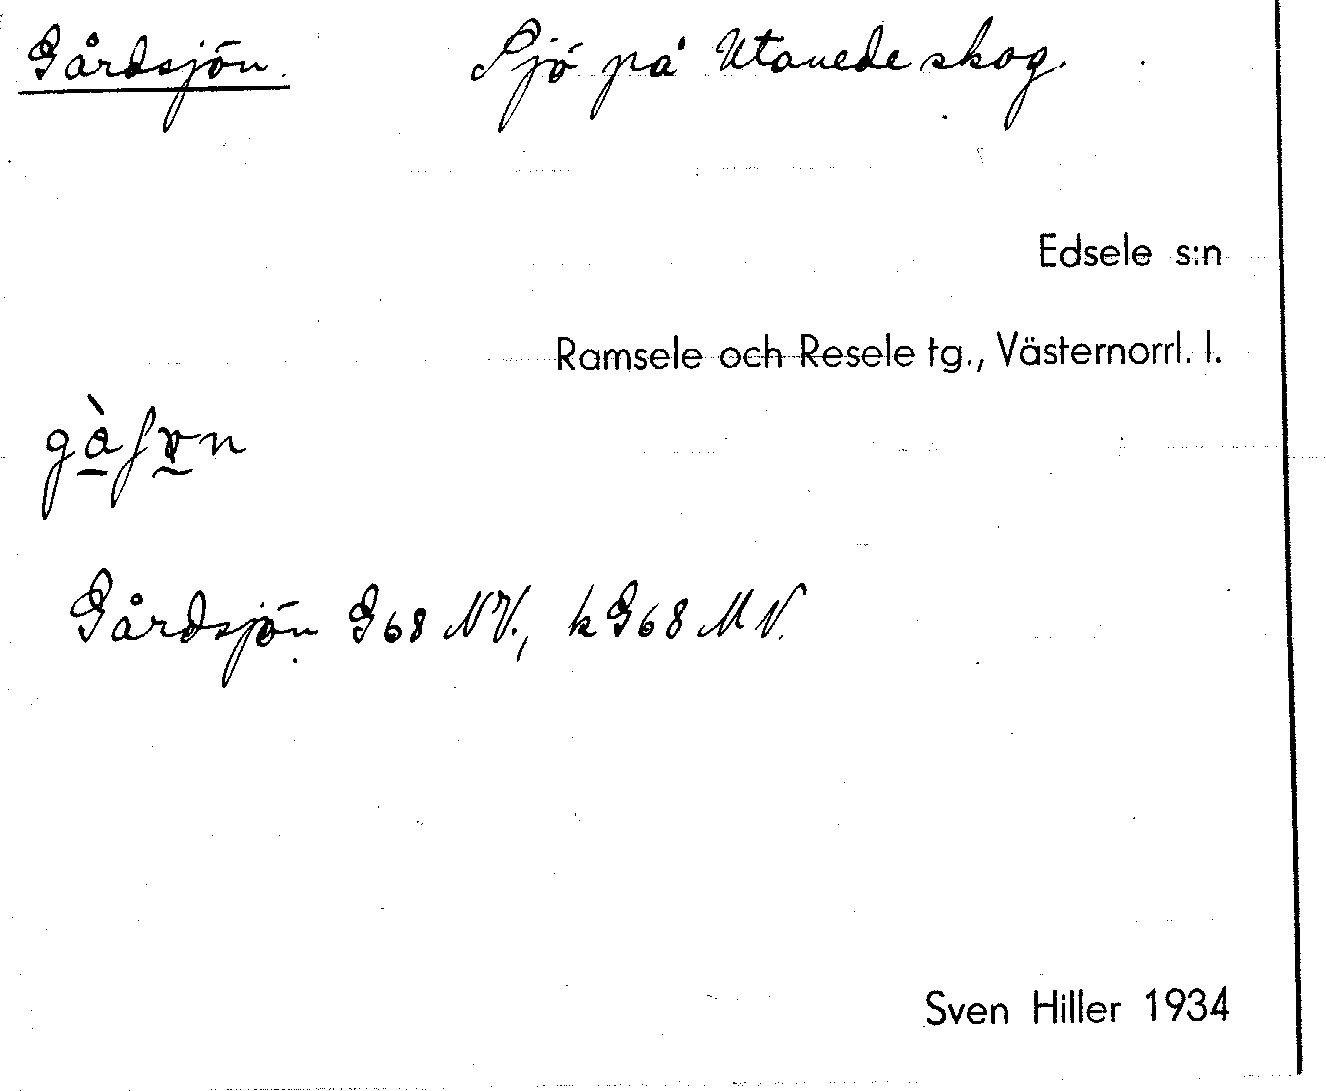 Gårdsjön. Sjö på Utanede skog.
Edsele s:n
Ramsele och Resele tg., Västernorrl. l.
Gårdsjön G68 NV., k G68 MV.
Sven Hiller 1934